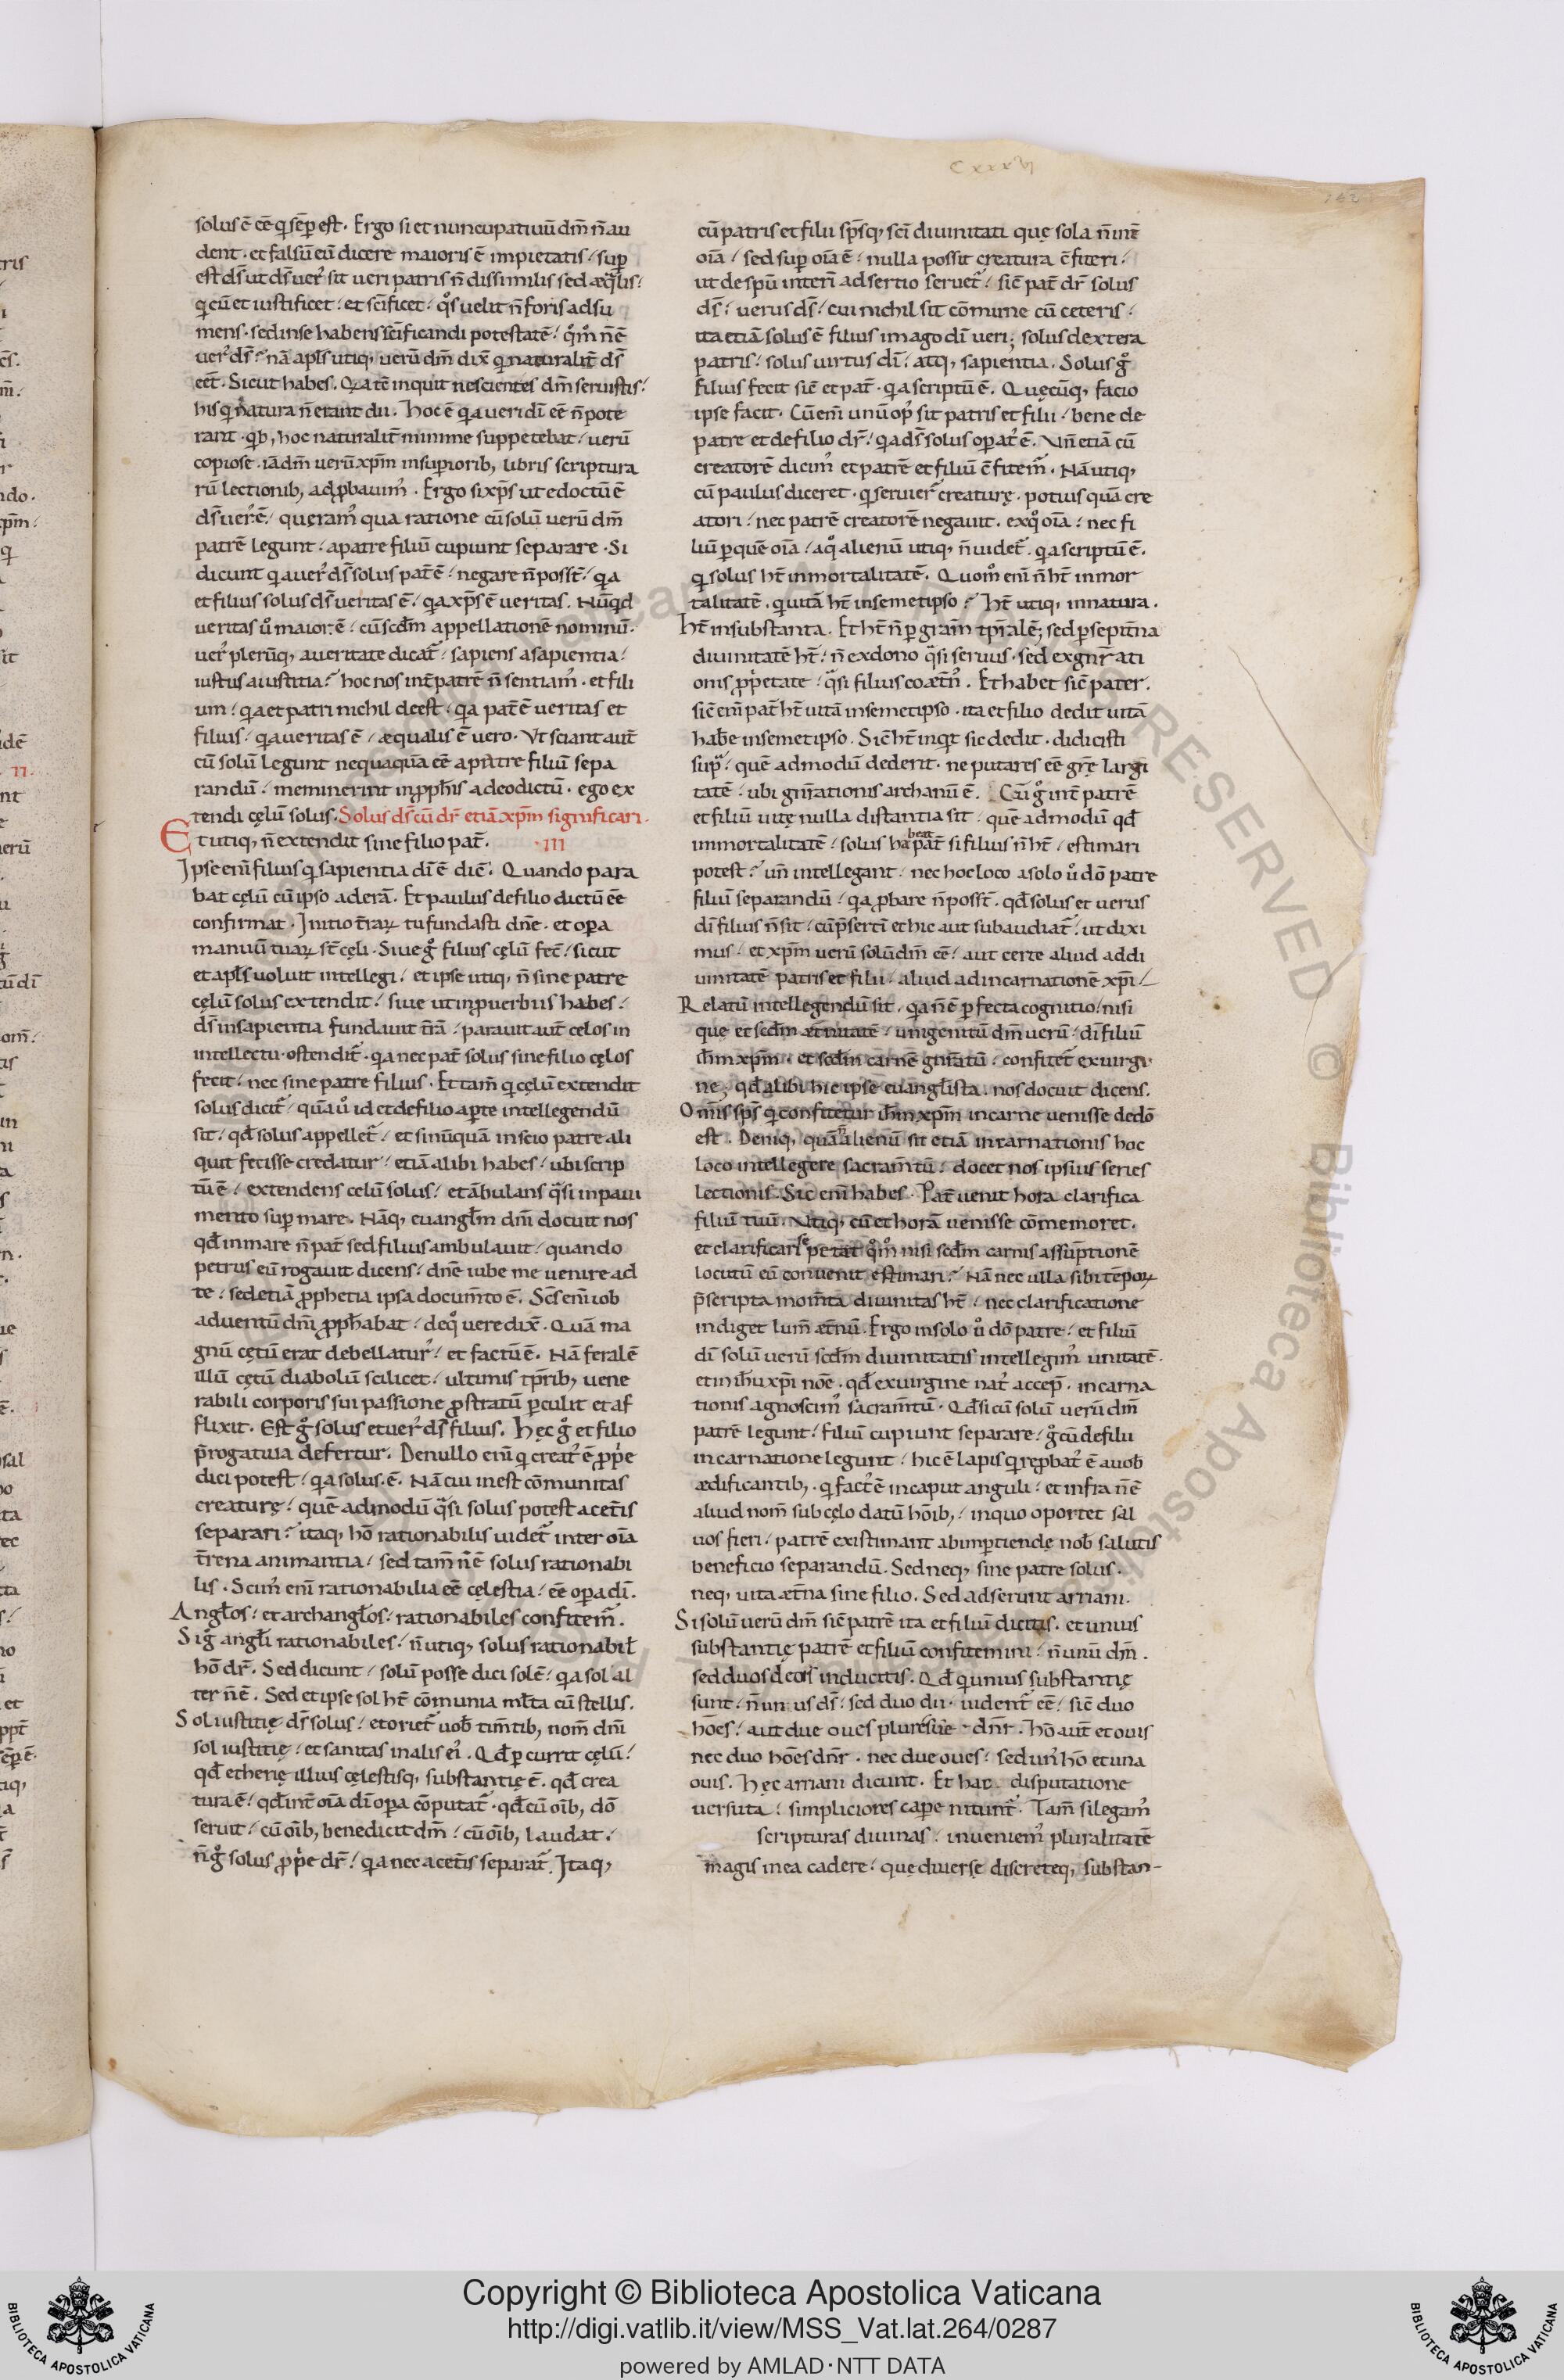 cxxxvi
solus ē eē q sēp est. Ergo si et nuncupatiuū dm̄ n̄ au
dent. et falsū eū dicere maioris ē impietatis, sup
est ds̄ ut ds̄ uer' sit ueri patris n̄ dissimilis sed æqlis,
q cū et iustificet, et sc̄ificet, qͦs uelit n̄ foris adsu
mens. sed in se habens sc̄ificandi potestatē, qͦm̊ n̄ ē
uer' ds̄? nā apl̄s utiq, uerū dm̄ dix̄ q naturalit̄ ds̄
eēt. Sicut habes. Qꝫ atē inquit nescientes dm̄ seruistis,
his q natura n̄ erant dii. Hoc ē qa ueri dī eē n̄ pote
rant. qb, hoc naturalit̄ minime suppetebat, uerū
copiose. iā dm̄ uerū xp̄m in supiorib, libris scriptura
rū lectionib, adpbauim'. Ergo si xp̄s ut edoctū ē
ds̄ uer' ē, queram' qua ratione cū solū uerū dm̄
patrē legunt, a patre filiū cupiunt separare. Si
dicunt qa uer' ds̄ solus pat̄ ē, negare n̄ posst̄, qa
et filius solus ds̄ ueritas ē, qa xp̄s ē ueritas. Nūqd
ueritas ů maior ē, cū scdm̄ appellationē nominū.
uer' plerūq, a ueritate dicat̄, sapiens a sapientia,
iustus a iustitia? hoc nos int̄ patrē n̄ sentiam'. et fili
um, qa et patri nichil deest, qa pat̄ ē ueritas et
filius, qa ueritas ē, æqualis ē uero. Vt sciant aut̄
cū solū legunt nequaqua eē a patre filiū sepa
randū, meminerint in pph̄is a deo dictū. ego ex
tendi cęlū solus. Solus ds̄ cū dr̄ etiā xp̄m significari.
Et utiq, n̄ extendit sine filio pat̄. .III
Ipse enī filius q sapientia dī ē dic̄. Quando para
bat cęlū cū ipso aderā. Et paulus de filio dictū eē
confirmat. Initio t̄raꝝ tu fundasti dn̄e. et opa
manuū tuaꝝ st̄ cęli. Siue gͦ filius cęlū fec̄, sicut
et apl̄s uoluit intellegi, et ipse utiq, n̄ sine patre
cęlū solus extendit, siue ut in puerbiis habes,
ds̄ in sapientia fundauit t̄rā, parauit aut̄ celos in
intellectu. ostendit̄. qa nec pat̄ solus sine filio cęlos
fecit, nec sine patre filius. Et tam̄ q cęlū extendit
solus dicit̄, quā ů id et de filio apte intellegendū
sit, qd̄ solus appellet̄, et si nūquā inscio patre ali
quit fecisse credatur, etiā alibi habes, ubi scrip
tū ē, extendens celū solus, et ābulans qͣsi in paui
mento sup mare. Nāq, euanglm̄ dnī docuit nos
qd̄ in mare n̄ pat̄ sed filius ambulauit, quando
petrus eū rogauit dicens, dn̄e iube me uenire ad
te, sed etiā pphetia ipsa documt̄o ē. Sc̄s enī iob
aduentū dnī pph̄abat, de qͦ uere dix̄. Quā ma
gnū cętū erat debellatur', et factū ē. Nā feralē
illū cętū diabolū scilicet, ultimis tp̄rib, uene
rabili corporis sui passione pstratū pculit et af
flixit. Est gͦ solus et uer' ds̄ filius. Hęc gͦ et filio
p̄rogatiua defertur. De nullo enī q creat' ē ppe
dici potest, qa solus. ē. Nā cui inest cōmunitas
creaturę, quē admodū qͣsi solus potest a cet̄is
separari? itaq, hō rationabilis uidet̄ inter oīa
t̄rena animantia, sed tam̄ n̄ ē solus rationabi
lis. Scim' enī rationabilia eē cęlestia, eē opa dī.
Anglos, et archanglos, rationabiles confitem̄.
Si gͦ angli rationabiles, n̄ utiq, solus rationabil̄
hō dr̄. Sed dicunt, solū posse dici solē, qa sol al
ter n̄ ē. Sed et ipse sol ht̄ cōmunia ml̄ta cū stellis.
Sol iustitię ds̄ solus, et oriet̄ uob̄ tim̄tib, nom̄ dnī
sol iustitię, et sanitas in alis ei'. Qd̄ pcurrit cęlū,
qd̄ etherię illius cęlestisq, substantię ē. qd̄ crea
tura ē, qd̄ int̄ oīa dī opa cōputat̄. qd̄ cū oīb, dō
seruit, cū oīb, benedicit dm̄, cū oīb, laudat,
n̄ gͦ solus ppe dr̄, qa nec a cet̄is separat̄. Itaq,
cū patris et filii sps̄q, scī diuinitati quę sola n̄ int̄
oīa, sed sup oīa ē, nulla possit creatura c̄fiteri,
ut de spū interī adsertio seruet̄, sic̄ pat̄ dr̄ solus
ds̄, uerus ds̄, cui nichil sit cōmune cū ceteris,
ita etiā solus ē filius imago dī ueri, solus dextera
patris, solus uirtus dī, atq, sapientia. Solus gͦ
filius fecit sic̄ et pat̄. qa scriptū ē. Quęcūq, facio
ipse facit. Cū em̄ unū op' sit patris et filii, bene de
patre et de filio dr̄, qa ds̄ solus opat' ē. Vn̄ etiā cū
creatorē dicim' et patrē et filiū c̄fitem̄. Nā utiq,
cū paulus diceret. q seruier̄ creaturę. potius quā cre
atori, nec patrē creatorē negauit. ex qͦ oīa, nec fi
liū p quē oīa, a qͦ alienū utiq, n̄ uidet̄. qa scriptū ē.
q solus ht̄ inmortalitatē. Quom̊ enī n̄ ht̄ inmor
talitatē. q uitā ht̄ in semetipso? Ht̄ utiq, in natura.
Ht̄ in substantia. Et ht̄ n̄ p gram̄ tp̄ralē, sed p sempit̄na
diuinitatē ht̄, n̄ ex dono qͣsi seruus. sed ex gnr̄ati
onis ppetate, qͣsi filius coæt̄n'. Et habet sic̄ pater.
sic̄ em̄ pat̄ ht̄ uitā in semetipso. ita et filio dedit uitā
hab̄e in semetipso. Sic̄ ht̄ inqt sic dedit. didicisti
supͣ, quē admodū dederit. ne putares eē grę̄ largi
tatē, ubi gnr̄ationis archanū ē. Cū gͦ int̄ patrē
et filiū uitę nulla distantia sit, quē admodū qd̄
inmortalitatē, solus habeat pat̄ si filius n̄ ht̄, estimari
potest? un̄ intellegant, nec hoc loco a solo ů dō patre
filiū separandū, qa pbare n̄ posst̄. qd̄ solus et uerus
dī filius n̄ sit, cū p̄sertī et hic aut subaudiat̄, ut dixi
mus, et xp̄m uerū solū dm̄ eē, aut certe aliud ad di
uinitatē patris et filii, aliud ad incarnationē xp̄i,
Relatū intellegendū sit. qa n̄ ē pfecta cognitio, nisi
quę et scdm̄ æt̄nitatē, unigenitū dm̄ uerū, dī filiū
ih̄m xp̄m, et scdm̄ carnē gnr̄atū, confitet̄ ex uirgi
ne, qd̄ alibi hic ipse euanglista. nos docuit dicens.
Omīs sps̄ q confitetur ih̄m xp̄m in carne uenisse de dō
est. Deniq, quā n̄ alienū sit etiā incarnationis hoc
loco intellegere sacram̄tū, docet nos ipsius series
lectionis. Sic enī habes. Pat̄ uenit hora clarifica
filiū tuū. Vtiq, cū et horā uenisse cōmemoret.
et clarificari se petat qͦm̊ nisi scdm̄ carnis assūptionē
locutū eū conuenit estimari? Nā nec ulla sibi tēpoꝝ
p̄scripta mom̄ta diuinitas ht̄, nec clarificatione
indiget lum̄ æt̄nū. Ergo in solo ů dō patre, et filiū
dī solū uerū scdm̄ diuinitatis intellegim' unitatē.
et in ih̄u xp̄i noē. qd̄ ex uirgine nat' accep̄. incarna
tionis agnoscim' sacram̄tū. Qd̄ si cū solū uerū dm̄
patrē legunt, filiū cupiunt separare, gͦ cū de filii
incarnatione legunt, hic ē lapis q repbat' ē a uob̄
ædificantib, q fact' ē in caput anguli, et infra n̄ ē
aliud nom̄ sub cęlo datū hōib, in quo oportet sal
uos fieri, patrē existimant ab inptiendę nob̄ salutis
beneficio separandū. Sed neq, sine patre solus.
neq, uita æt̄na sine filio. Sed adserunt arriani.
Si solū uerū dm̄ sic̄ patrē ita et filiū dicitis. et unius
substantię patrē et filiū confitemini, n̄ unū dm̄.
sed duos deos inducitis. Qd̄ q unius substantię
sunt, n̄ unus ds̄, sed duo dii. uident̄ eē, sic̄ duo
hōes, aut due oues pluresue dnr̄. Hō aut̄ et ouis
nec duo hōes dnr̄. nec due oues, sed un' hō et una
ouis. Hęc arriani dicunt. Et hac disputatione
uersuta, simpliciores cape nitunt̄. Tam̄ si legam'
scripturas diuinas, inueniem' pluralitatē
magis in ea cadere, quę diuerse discreteq, substan-
Copyright © Biblioteca Apostolica Vaticana
http://digi.vatlib.it/view/MSS_Vat.lat.264/0287
powered by AMLAD·NTT DATA